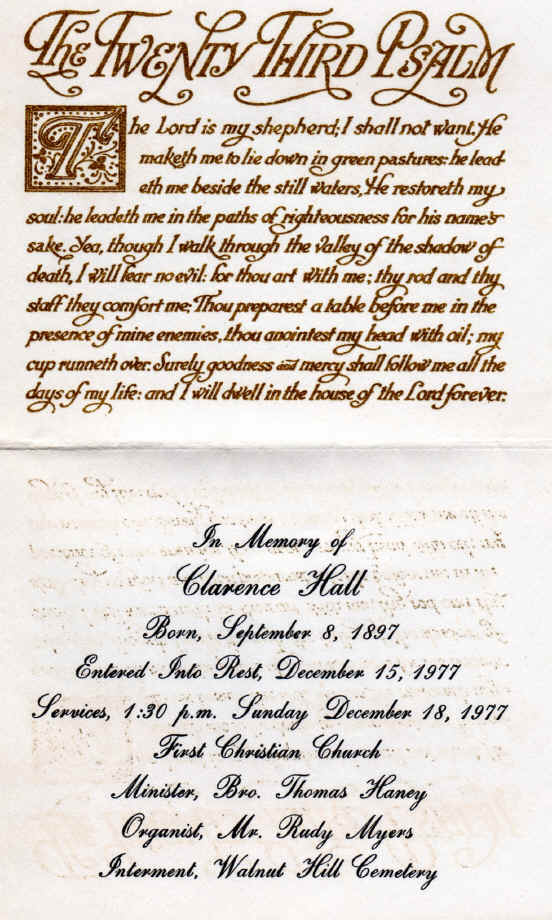 The Twenty Third Psalm
The Lord is my shepherd; I shall not want. He
maketh me to lie down in green pastures: he lead-
eth me beside the still waters, He restoreth my
soul: he leadeth me in the paths of righteousness for his name's
sake. Yea, though I walk through the valley of the shadow of
death, I will fear no evil: for thou art with me; thy rod and thy
staff they comfort me; Thou preparest a table before me in the
presence of mine enemies, thou anointest my head with oil; my
cup runneth over. Surely goodness and mercy shall follow me all the
days of my life: and I will dwell in the house of the Lord forever.
In Memory of
Clarence Hall
Born, September 8, 1897
Entered Into Rest, December 15, 1977
Services, 1:30 p.m. Sunday December 18, 1977
First Christian Church
Minister, Bro. Thomas Haney
Organist, Mr. Rudy Myers
Interment, Walnut Hill Cemetery